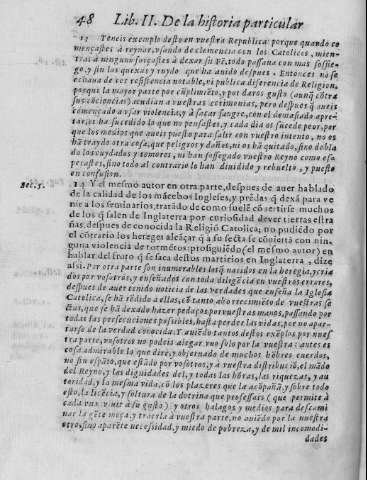 48 Lib. II. De la historia particular
13 Teneis exemplo desto en vuestra Republica: porque quando co
mençastes à reynar, vsando de clemencia con los Catolicos, mien-
tras à ninguno forçastes à dexar su Fè, todo passaua con mas sossie-
go, y sin las quexas y ruydo que ha auido despues. Entonces no se
echaua de ver resistencia notable, ni publica diferencia de Religion,
porque la mayor parte por cũplimiẽto, y por daros gusto (aunq̃ cõtra
sus cõciencias) acudian a vuestras cerimonias, pero despues q̃ aueis
començado a vsar violencia, y à sacar sangre, con el demasiado apre-
tar, os ha sucedido lo que no pensastes, y cada dia os sucede peor, por
que los medios que aueis puesto para salir con vuestro intento, no os
hã traydo otra cosa, que peligros y daños, ni os hã quitado, sino dobla
do los cuydados y temores, ni han sossegado vuestro Reyno como espe
perastes, sino todo al contrario lo han diuidido y rebuelto, y puesto
en confusion.
Sec. 5. 14 Y el mesmo autor en otra parte, despues de auer hablado
de la calidad de los mãcebos Ingleses, y prẽdas q̃ dexã para ve
nir a los seminarios, tratãdo de como suelẽ cõuertirse muchos
de los q̃ salen de Inglaterra por curiosidad de ver tierras estra
ñas, despues de conocida la Religiõ Catolica; no pudiẽdo por
el cõtrario los hereges alẽçar q̃ a su secta se cõuiertã con nin-
guna violencia de tormẽtos: prosiguiẽdo (el mesmo autor) en
hablar del fruto q̃ se saca destos martirios en Inglaterra, dize
assi. Por otra parte son inumerables los q̃ nacidos en la heregia, y cria
dos por vosotros, y enseñados con toda diligẽcia en vuestros errores,
despues de auer tenido noticia de las verdades que enseña la Iglesia
Catolica, se hã rẽdido a ellas, cõ tanto aborrecimiẽto de vuestras se
ctas, que se hã dexado hazer pedaços por vuestras manos, passando por
todas las persecuciones possibles, hasta perder las vidas, por no apar-
tarse de la verdad conocida. Y auiẽdo tantos destos exẽplos por nues
tra parte, vosotros no podeis alegar vno solo por la vuestra: antes es
cosa admirable la que dirè, y obseruada de muchos hõbres cuerdos,
no sin espãto, que estãdo por vosotros, y à vuestra distribuciõ, el mãdo
del Reyno, y las dignidades del, y todas las hõras, las riquezas, y au
toridad, y la mesma vida, cõ los plazeres que la acõpañã, y sobre todo
esto, la licẽcia, y soltura de la dotrina que professais (que permite à
cada vno viuir à su gusto) y otros halagos y medios para descami
nar la gẽte moça, y traerla à vuestra parte, no auiẽdo por la nuestra
otro, sino aparẽte necessidad, y miedo de pobreza, y de mil incomodi-
dades